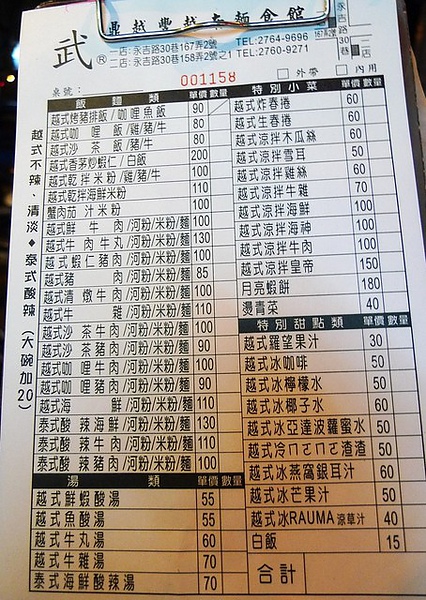 鼎越豐越泰麵食館
武®
一店:永吉路30巷167弄2號 TEL:2764-9696
二店:永吉路30巷158弄2號之1 TEL:2760-9271
永吉路30巷
桌號:
001158
□外帶 □內用
越式不辣、清淡◆泰式酸辣(大碗加20)
飯麵類 單價 數量
越式烤豬排飯/咖哩魚飯 90
越式咖哩飯/雞/豬/牛 80
越式沙茶飯/豬/牛 80
越式香茅炒蝦仁/白飯 200
越式乾拌米粉/雞/豬/牛 100
越式乾拌海鮮米粉 110
蟹肉茄汁米粉 100
越式鮮牛肉/河粉/米粉/麵 100
越式牛肉牛丸/河粉/米粉/麵 130
越式蝦仁豬肉/河粉/米粉/麵 100
越式豬肉/河粉/米粉/麵 85
越式清燉牛肉/河粉/米粉/麵 100
越式牛雜/河粉/米粉/麵 110
越式沙茶牛肉/河粉/米粉/麵 100
越式沙茶豬肉/河粉/米粉/麵 90
越式咖哩牛肉/河粉/米粉/麵 100
越式咖哩豬肉/河粉/米粉/麵 90
越式海鮮/河粉/米粉/麵 110
泰式酸辣海鮮/河粉/米粉/麵 130
泰式酸辣牛肉/河粉/米粉/麵 110
泰式酸辣豬肉/河粉/米粉/麵 100
湯類 單價 數量
越式鮮蝦酸湯 55
越式魚酸湯 55
越式牛丸湯 60
越式牛雜湯 70
泰式海鮮酸辣湯 70
特別小菜 單價 數量
越式炸春捲 60
越式生春捲 60
越式涼拌木瓜絲 60
越式涼拌雪耳 50
越式涼拌雞絲 60
越式涼拌牛雜 70
越式涼拌海鮮 100
越式涼拌海神 100
越式涼拌牛肉 100
越式涼拌皇帝 150
月亮蝦餅 180
燙青菜 40
特別甜點類 單價 數量
越式羅望果汁 30
越式冰咖啡 50
越式冰檸檬水 50
越式冰椰子水 60
越式冰亞達波羅蜜水 50
越式冷ㄇㄛㄇㄛ渣渣 50
越式冰燕窩銀耳汁 60
越式冰芒果汁 50
越式冰RAUMA涼草汁 40
白飯 15
合計